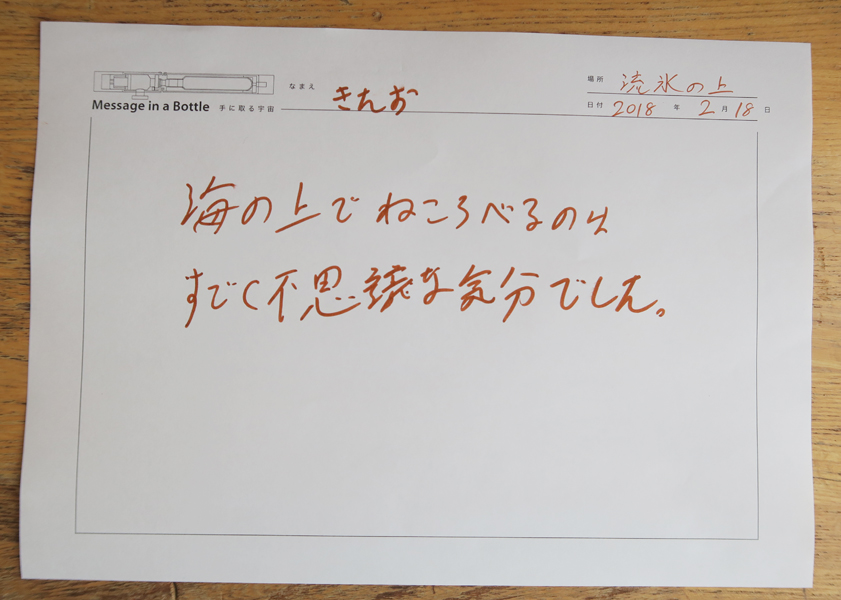 Message in a Bottle 手に取る宇宙
なまえ きたお
場所 流氷の上
日付 2018 年 2 月 18 日
海の上でねころべるのは
すごく不思議な気分でした。